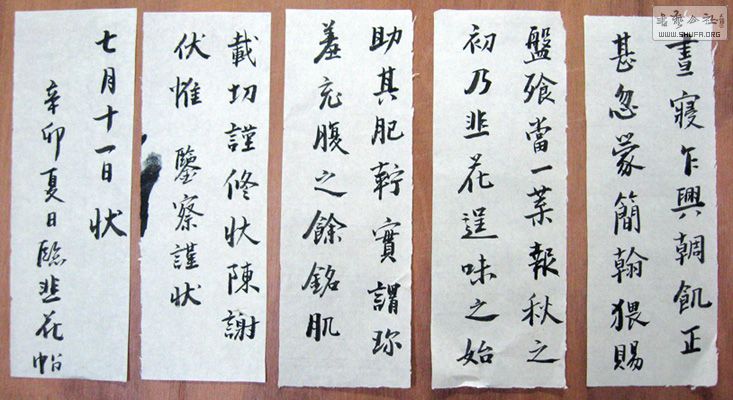 書藝公社
WWW.SHUFA.ORG
晝寢乍興輖飢正
甚忽蒙簡翰猥賜
盤飧當一葉報秋之
初乃韭花逞味之始
助其肥羜實謂珍
羞充腹之餘銘肌
載切謹修狀陳謝
伏惟 鑒察謹狀
七月十一日狀
辛卯夏日臨韭花帖